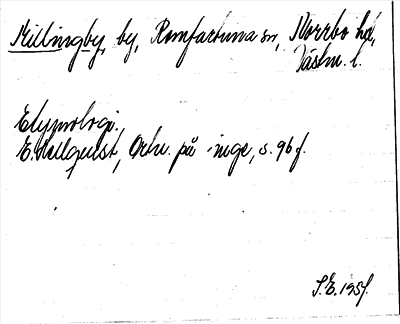 Killingby, by, Romfartuna sn, Norrbo hd,
Västm. l.
Etymologi.
E. Hellquist, Ortn. på -inge, s. 96 f.
S.E. 195